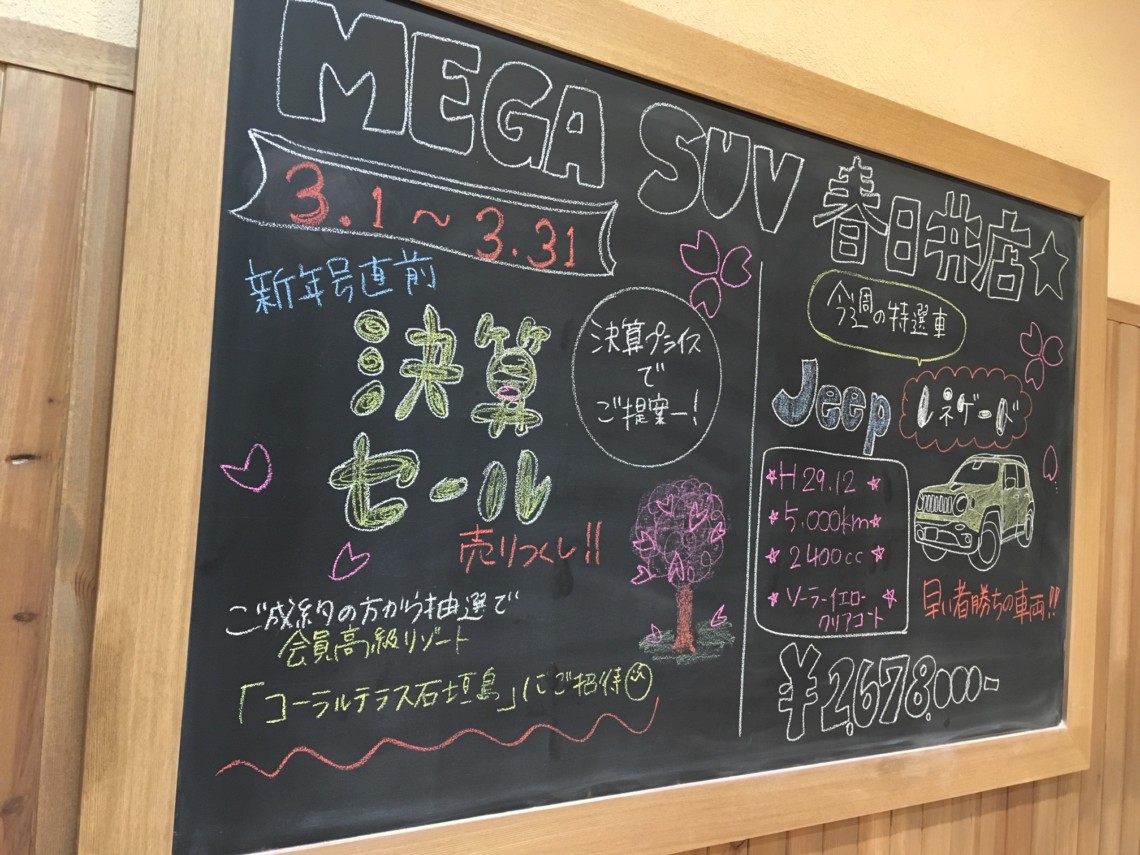 MEGA SUV 春日井店☆
3.1～3.31
新年号直前
決算
セール
売りつくし!!
決算プライス
で
ご提案ー!
ご成約の方から抽選で
会員高級リゾート
「コーラルテラス石垣島」にご招待
今週の特選車
Jeep レネゲード
★H29.12★
★5.000km★
★2400cc★
★ソーラーイエロー★
クリアコート
早い者勝ちの車両!!
¥2,678.000-